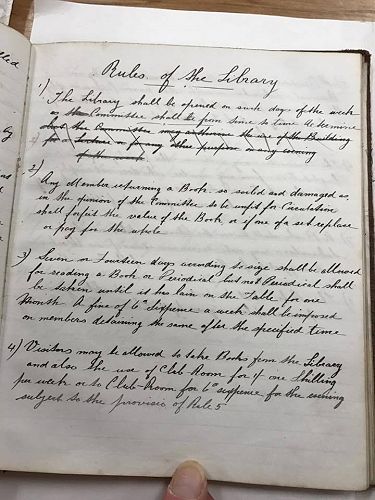 Rules of the Library
1) The Library shall be opened on such days of the week
as the Committee shall from time to time determine
that the Committee may authorise the use of the Building
for a lecture or for any other purpose on any evening
of the week
2)
Any Member returning a Book so soiled and damaged as
in the opinion of the Committee to be unfit for Circulation
shall forfeit the value of the Book or if one of a set replace
or pay for the whole
3) Seven or Fourteen days according to size shall be allowed
for reading a Book or Periodical but not Periodical shall
be taken until it has lain on the Table for one
Month. A fine of 6d Sixpence a week shall be imposed
on members detaining the same after the specified time
4) Visitors may be allowed to take Books from the Library
and also the use of Club Room for 1/- one Shilling
per week or to Club-Room for 6d sixpence for the evening
subject to the proviso of Rule 5